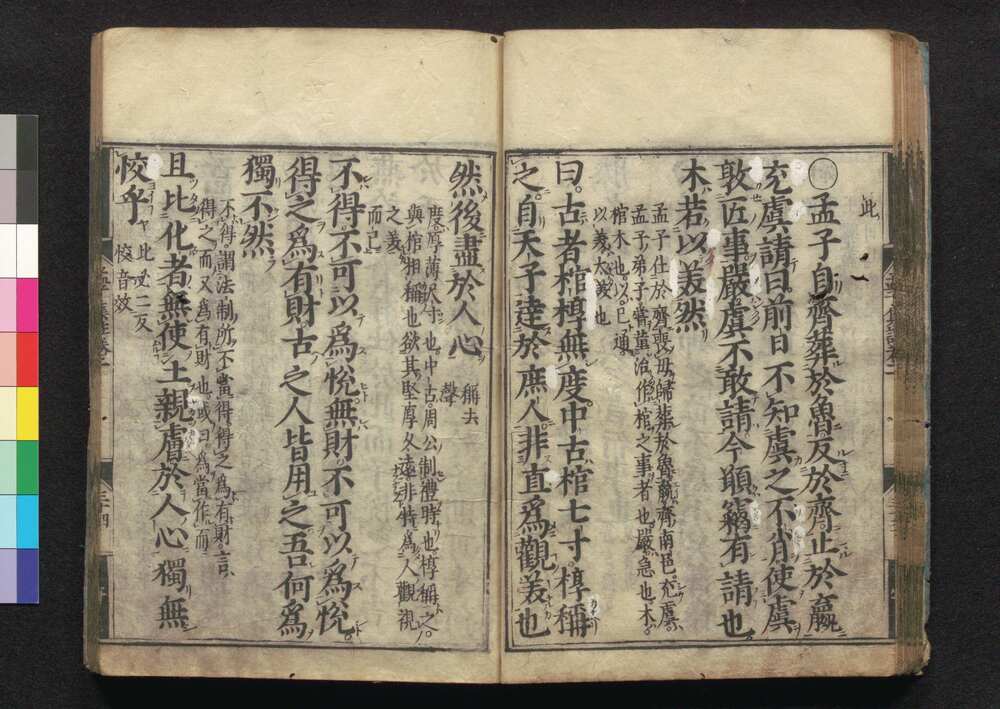 此
○孟子自齊葬於魯反於齊止於嬴
充虞請曰前日不知虞之不肖使虞
敦匠事嚴虞不敢請今願竊有請也
木若以美然
孟子仕於齊喪母歸葬於魯嬴齊南邑充虞
孟子弟子嘗董治作棺之事者也嚴急也木
棺木也以已通
以美太美也
曰古者棺椁無度中古棺七寸椁稱
之自天子達於庶人非直爲觀美也
然後盡於人心
稱去
聲
度厚薄尺寸也中古周公制禮時也椁稱之
與棺相稱也欲其堅厚久遠非特爲人觀視
之美
而已
不得不可以爲悅無財不可以爲悅
得之爲有財古之人皆用之吾何爲
獨不然
不得謂法制所不當得得之爲有財言
得之而又爲有財也或曰爲當作而
且比化者無使土親膚於人心獨無
恔乎
比必二反
恔音效